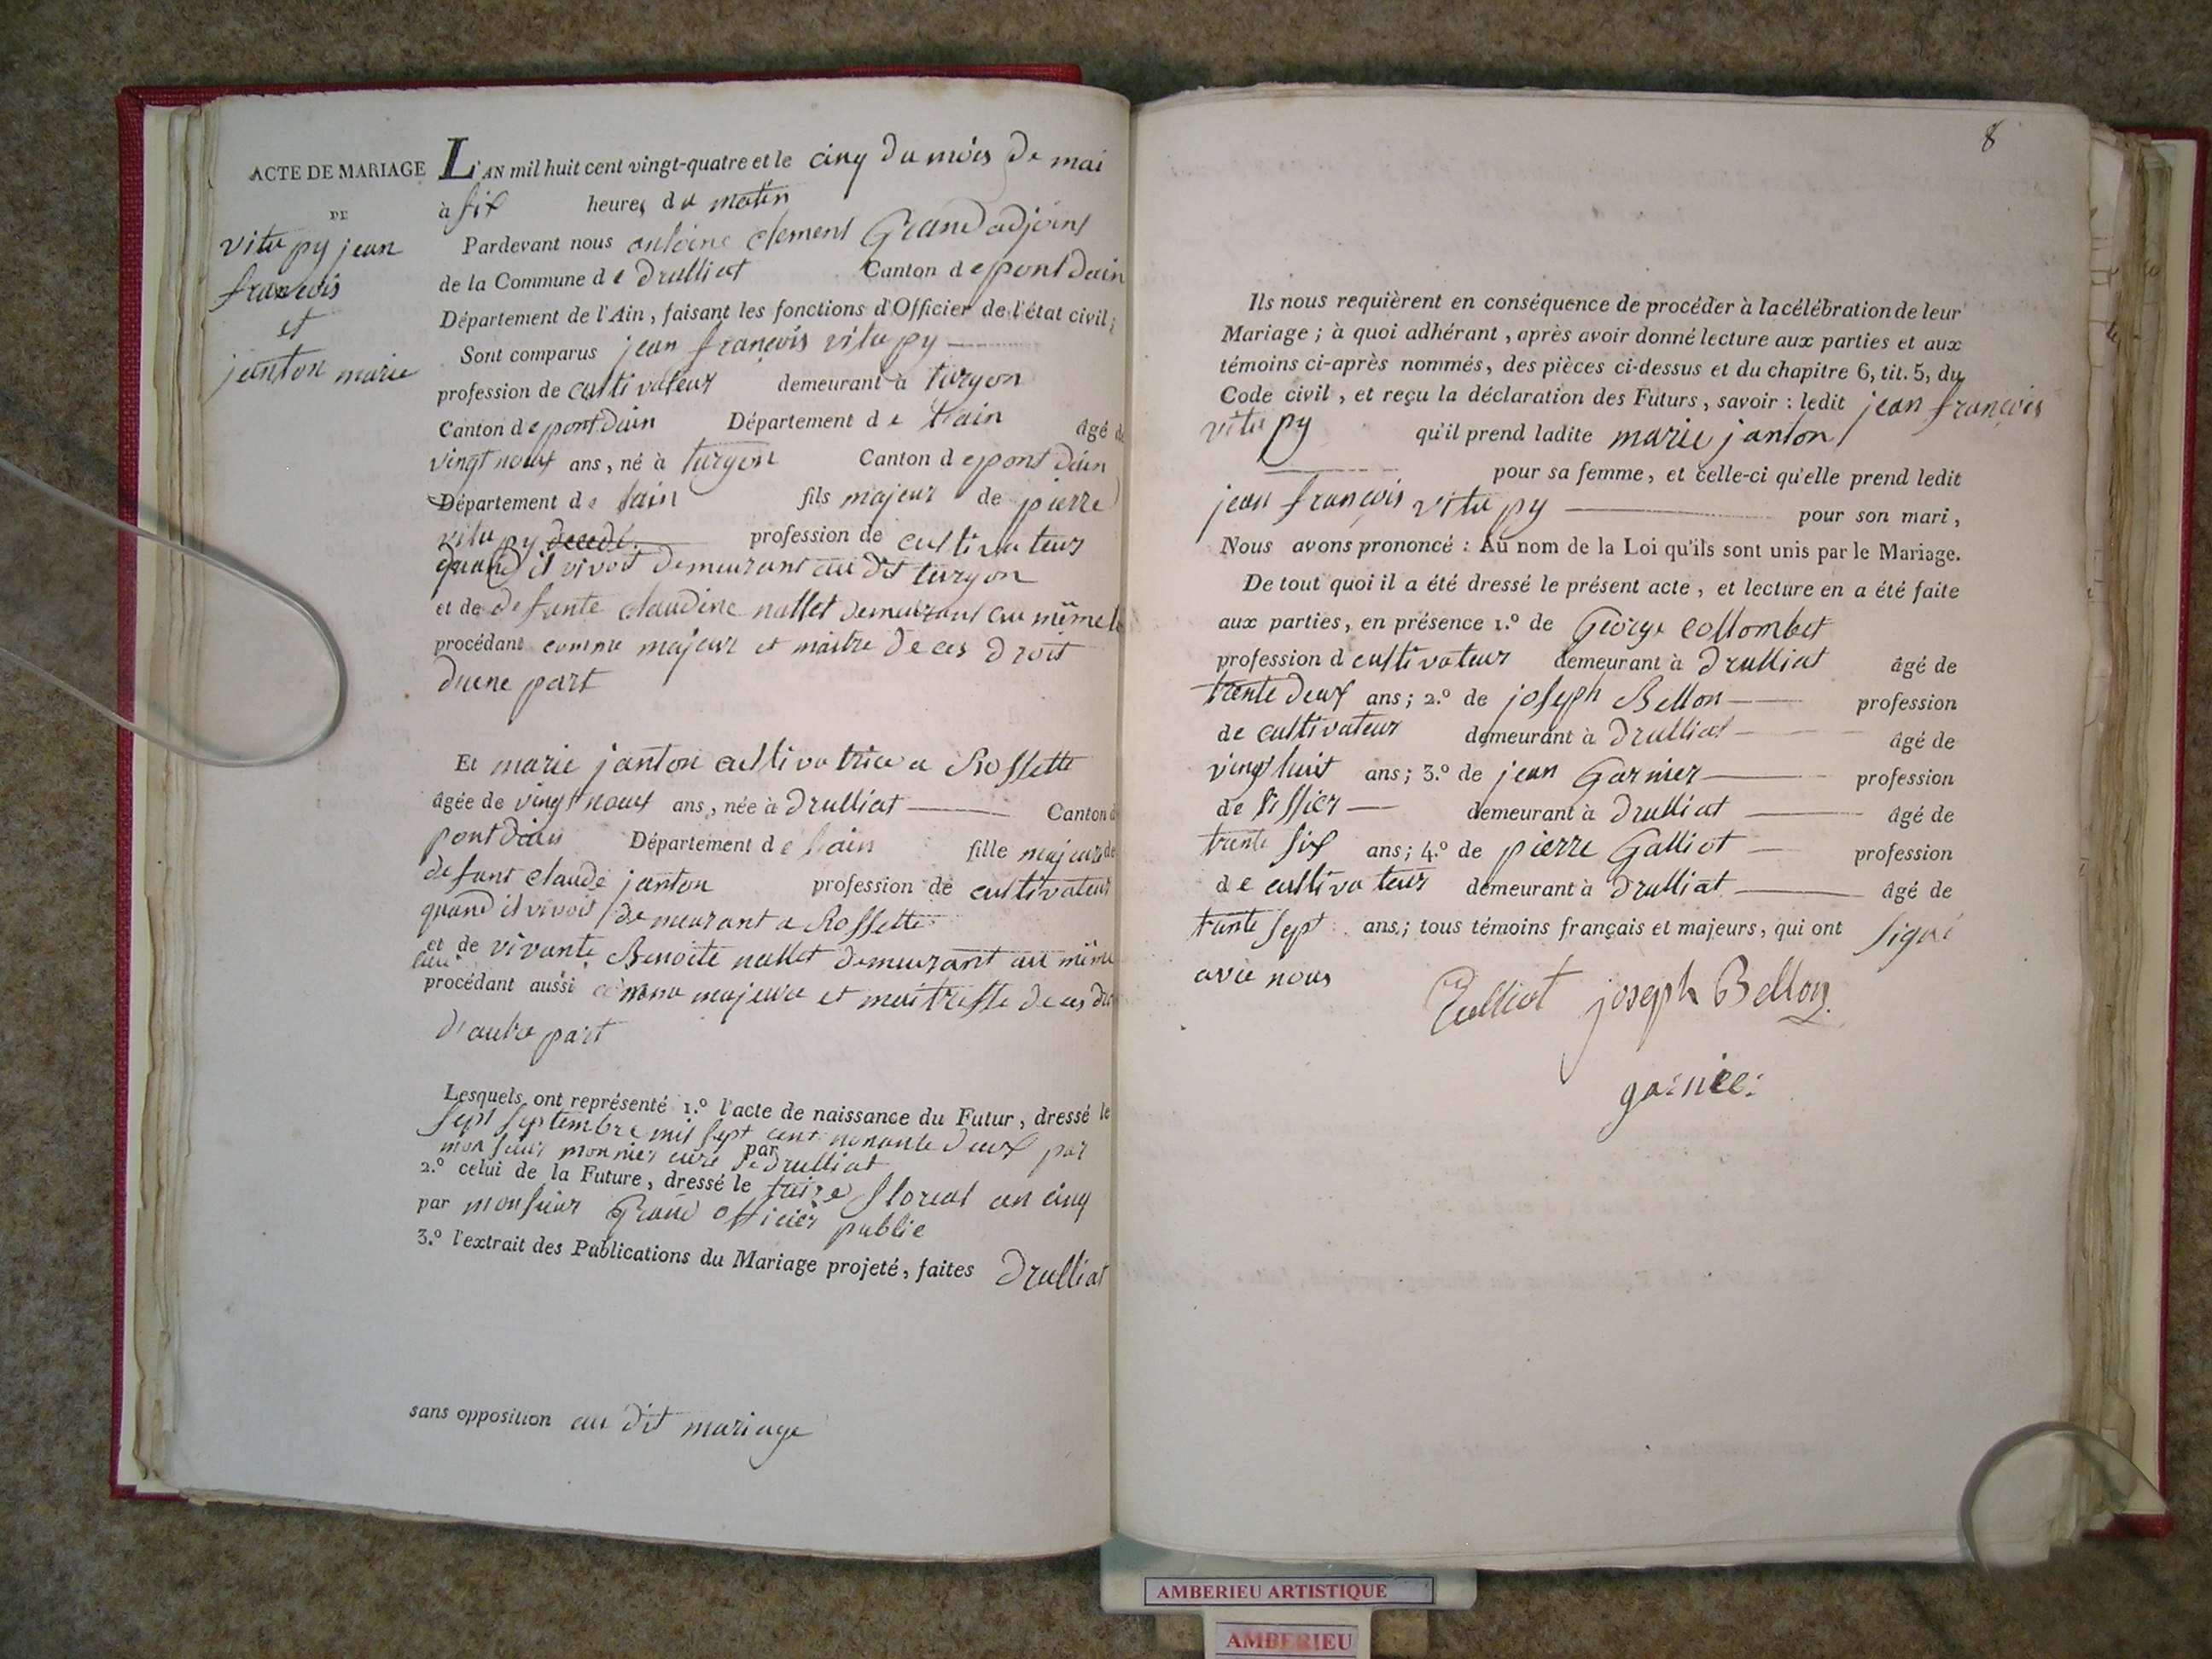 ACTE DE MARIAGE
DE
vitu py jean
francois
et
janton marie
L'AN mil huit cent vingt-quatre et le cinq du mois de mai
à six heures du matin
Pardevant nous antoine clement Grand adjoint
de la Commune de Drulliat Canton de pont dain
Département de l'Ain, faisant les fonctions d'Officier de l'état civil;
Sont comparus jean françois vitu py
profession de cultivateur demeurant à turgon
Canton de pont dain Département de lain âgé de
vingt neuf ans, né à turgon Canton de pont dain
Département de lain fils majeur de pierre
vitu py decede profession de cultivateur
quand il vivoit demeurant au dit turgon
et de defunte claudine nallet demeurant au même
procédant comme majeur et maitre de ces droit
dune part
Et marie janton cultivatrice a Rossette
âgée de vingt neuf ans, née à Drulliat Canton
pont dain Département de lain fille majeure de
defunt claude janton profession de cultivateur
quand il vivoit demeurant a Rossette
et de vivante Benoite nallet demeurant au même
lieu
procédant aussi comme majeure et maitresse de ces
d'autre part
Lesquels ont représenté 1.º l'acte de naissance du Futur, dressé le
sept septembre mil sept cent nonante deux par
par
monsieur monnier curé de drulliat
2.º celui de la Future, dressé le floreal an cinq
par monsieur Grand officier public
3.º l'extrait des Publications du Mariage projeté, faites Drulliat
sans opposition au dit mariage
8
Ils nous requièrent en conséquence de procéder à la célébration de leur
Mariage; à quoi adhérant, après avoir donné lecture aux parties et aux
témoins ci-après nommés, des pièces ci-dessus et du chapitre 6, tit. 5, du
Code civil, et reçu la déclaration des Futurs, savoir: ledit jean françois
vitu py qu'il prend ladite marie janton
pour sa femme, et celle-ci qu'elle prend ledit
jean françois vitu py pour son mari,
Nous avons prononcé: Au nom de la Loi qu'ils sont unis par le Mariage.
De tout quoi il a été dressé le présent acte, et lecture en a été faite
aux parties, en présence 1.º de George collombet
profession d cultivateur demeurant à Drulliat âgé de
trente deux ans; 2.º de joseph Bellon profession
de cultivateur demeurant à Drulliat âgé de
vingt huit ans; 3.º de jean Garnier profession
de tissier demeurant à Drulliat âgé de
trente six ans; 4.º de pierre Galliot profession
de cultivateur demeurant à Drulliat âgé de
trente sept ans; tous témoins français et majeurs, qui ont signé
avec nous
joseph Bellon
garnier
AMBERIEU ARTISTIQUE
AMBERIEU